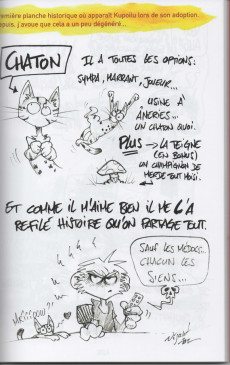 première planche historique où apparaît Kupoilu lors de son adoption.
depuis, j'avoue que cela a un peu dégénéré...
CHATON
IL A TOUTES LES OPTIONS:
SYMPA, MARRANT, JOUEUR...
USINE À
ÂNERIES...
UN CHATON QUOI.
PLUS → LA TEIGNE
(EN BONUS)
UN CHAMPIGNON DE
MERDE TOUT MOISI.
ET COMME IL M'AIME BEN IL ME L'A
REFILÉ HISTOIRE QU'ON PARTAGE TOUT.
SAUF LES MÉDOCS...
CHACUN LES
SIENS...